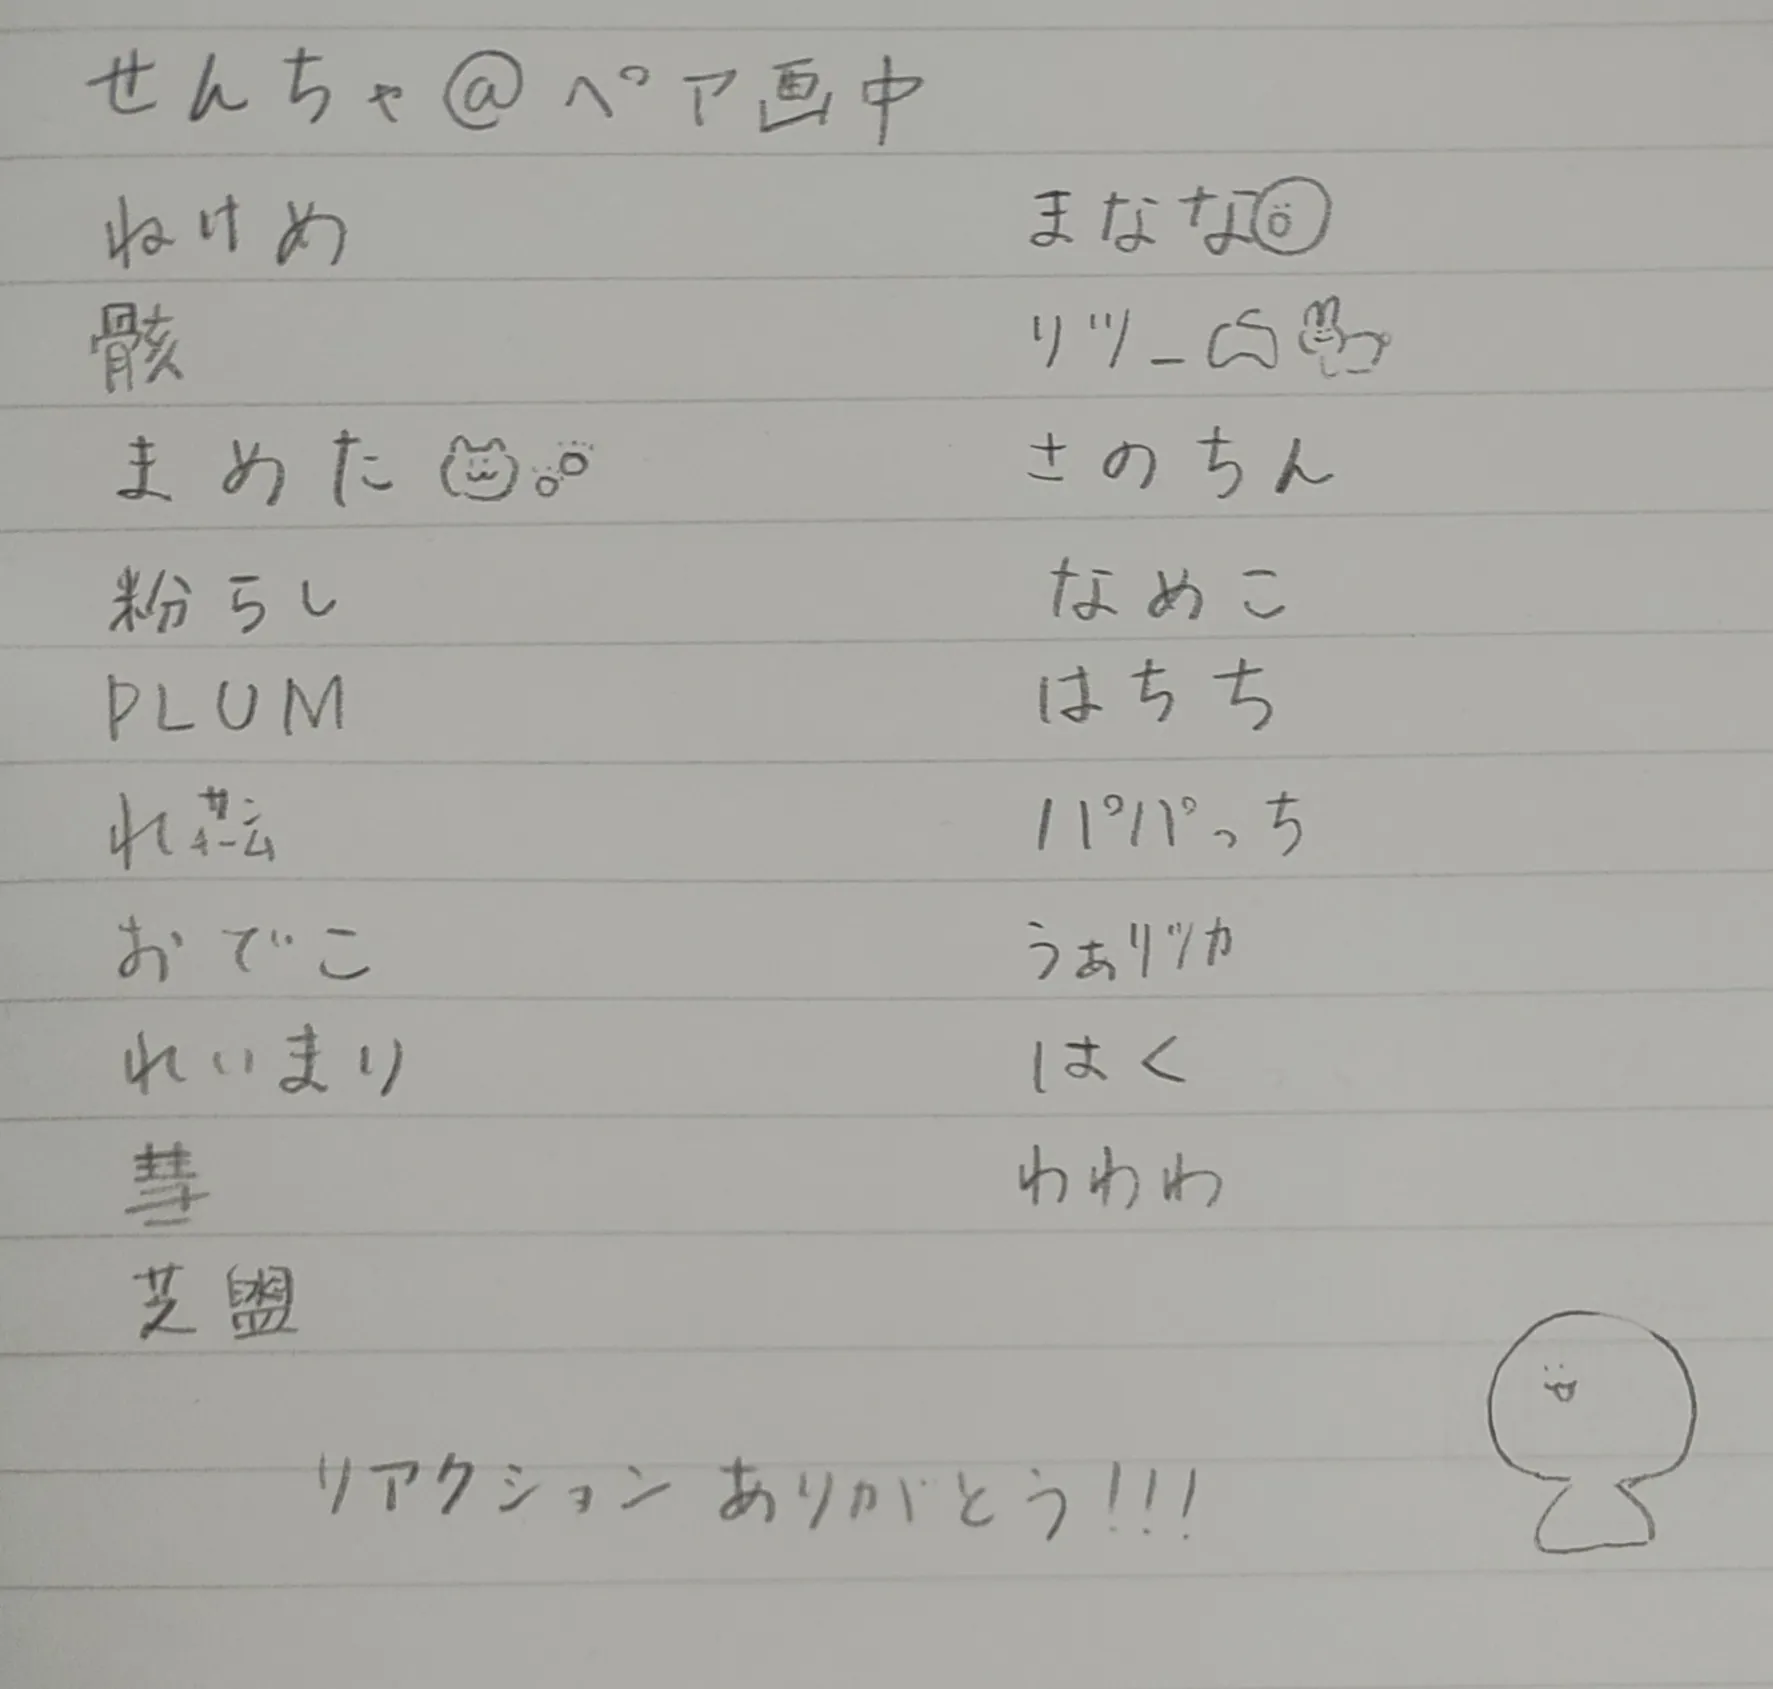 せんちゃ@ペア画中
ねけめ
骸
まめた
粉らし
PLUM
れ
おでこ
れいまり
彗
芝盟
まなな
リツー
さのちん
なめこ
はちち
パパっち
うぁリツカ
はく
わわわ
リアクションありがとう!!!